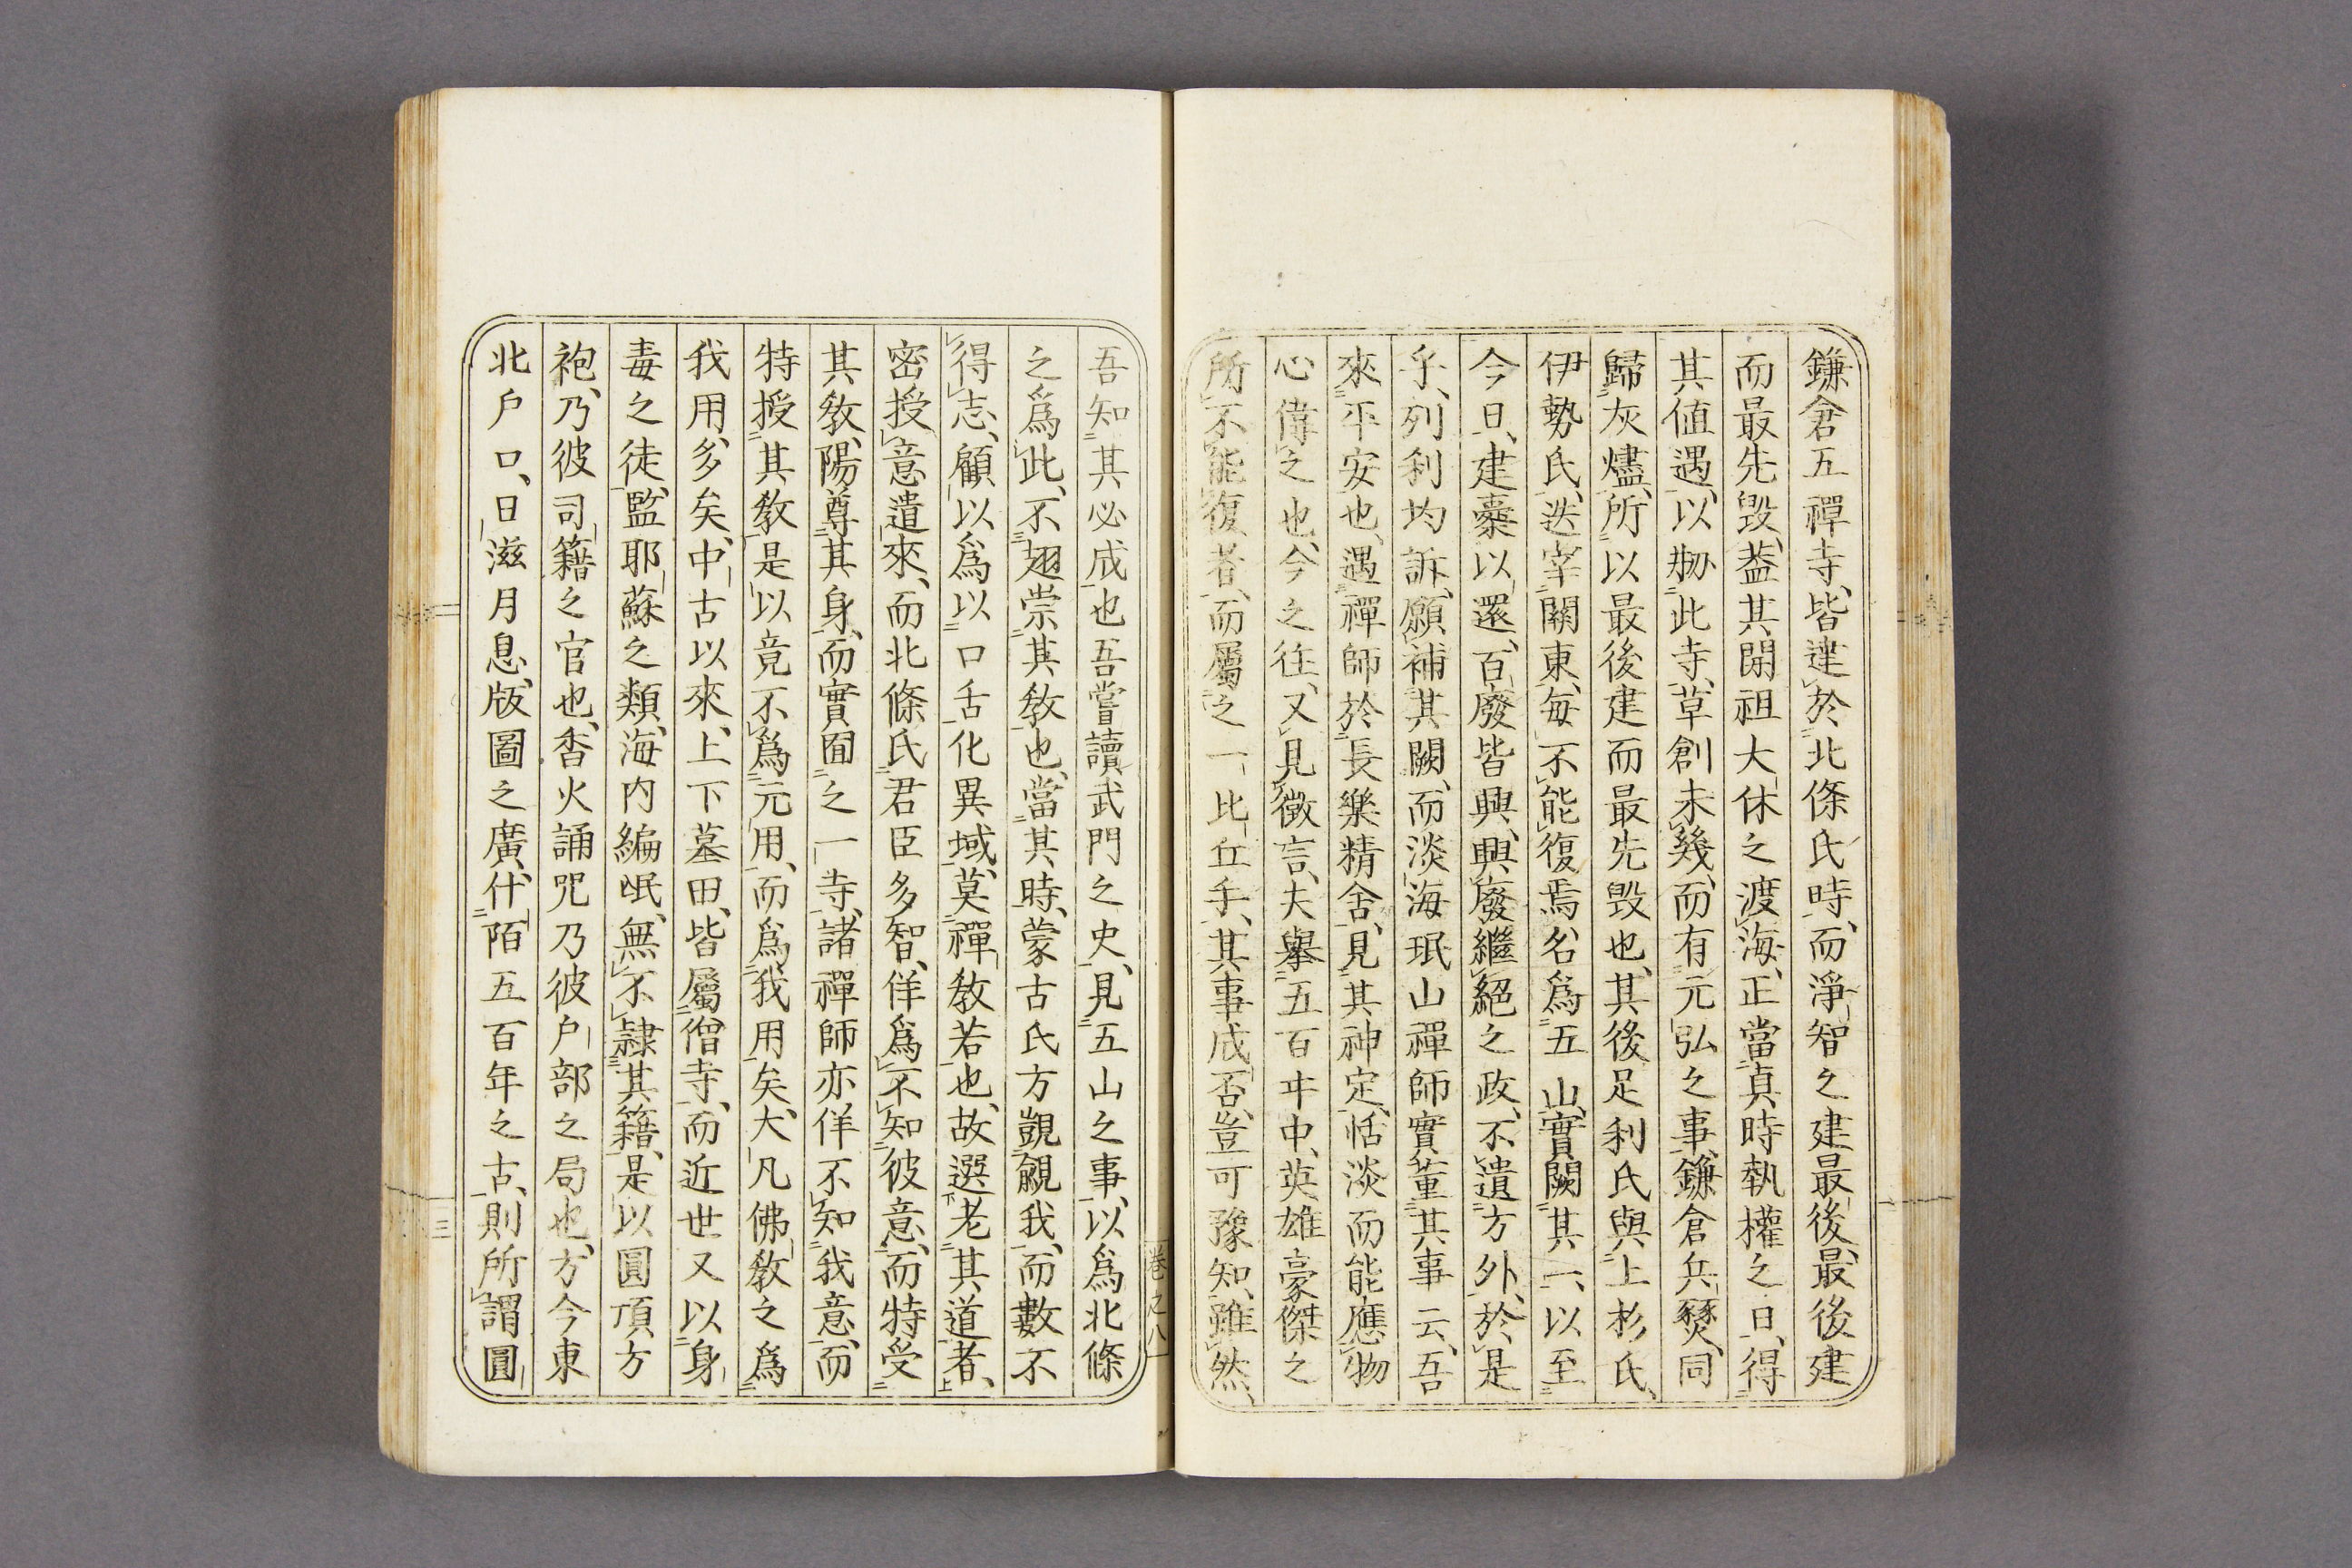 鎌倉五禪寺、皆建於北條氏時、而淨智之建最後、最後建
而最先毀、蓋其開祖大休之渡海、正當貞時執權之日、得
其値遇、以刱此寺、草創未幾、而有元弘之事、鎌倉兵燹、同
歸灰燼、所以最後建而最先毀也、其後足利氏與上杉氏、
伊勢氏、迭宰關東、每不能復焉、名爲五山、實闕其一、以至
今日、建櫜以還、百廢皆興、興廢繼絕之政、不遺方外、於是
乎、列利均訴、願補其闕、而淡海珉山禪師實董其事云、吾
來平安也、遇禪師於長樂精舍、見其神定、恬淡而能應物
心偉之也、今之往、又見徵言、夫擧五百年中、英雄豪傑之
所不能復者、而屬之一比丘手、其事成否、豈可豫知、雖然、
吾知其必成也吾嘗讀武門之史、見五山之事、以爲北條
之爲此、不翅崇其敎也、當其時、蒙古氏方覬覦我、而數不
得志、顧以爲以口舌化異域、莫禪敎若也、故選老其道者、
密授意遣來、而北條氏君臣多智、佯爲不知彼意、而特受
其敎、陽尊其身、而實囿之一寺、諸禪師亦佯不知我意、而
特授其敎、是以竟不爲元用、而爲我用矣、大凡佛敎之爲
我用、多矣、中古以來、上下墓田、皆屬僧寺、而近世又以身
毒之徒、監耶蘇之類、海内編氓、無不隷其籍、是以圓頂方
袍、乃彼司籍之官也、香火誦咒乃彼戶部之局也、方今東
北戶口、日滋月息、版圖之廣、什陌五百年之古、則所謂圓
卷之八
三